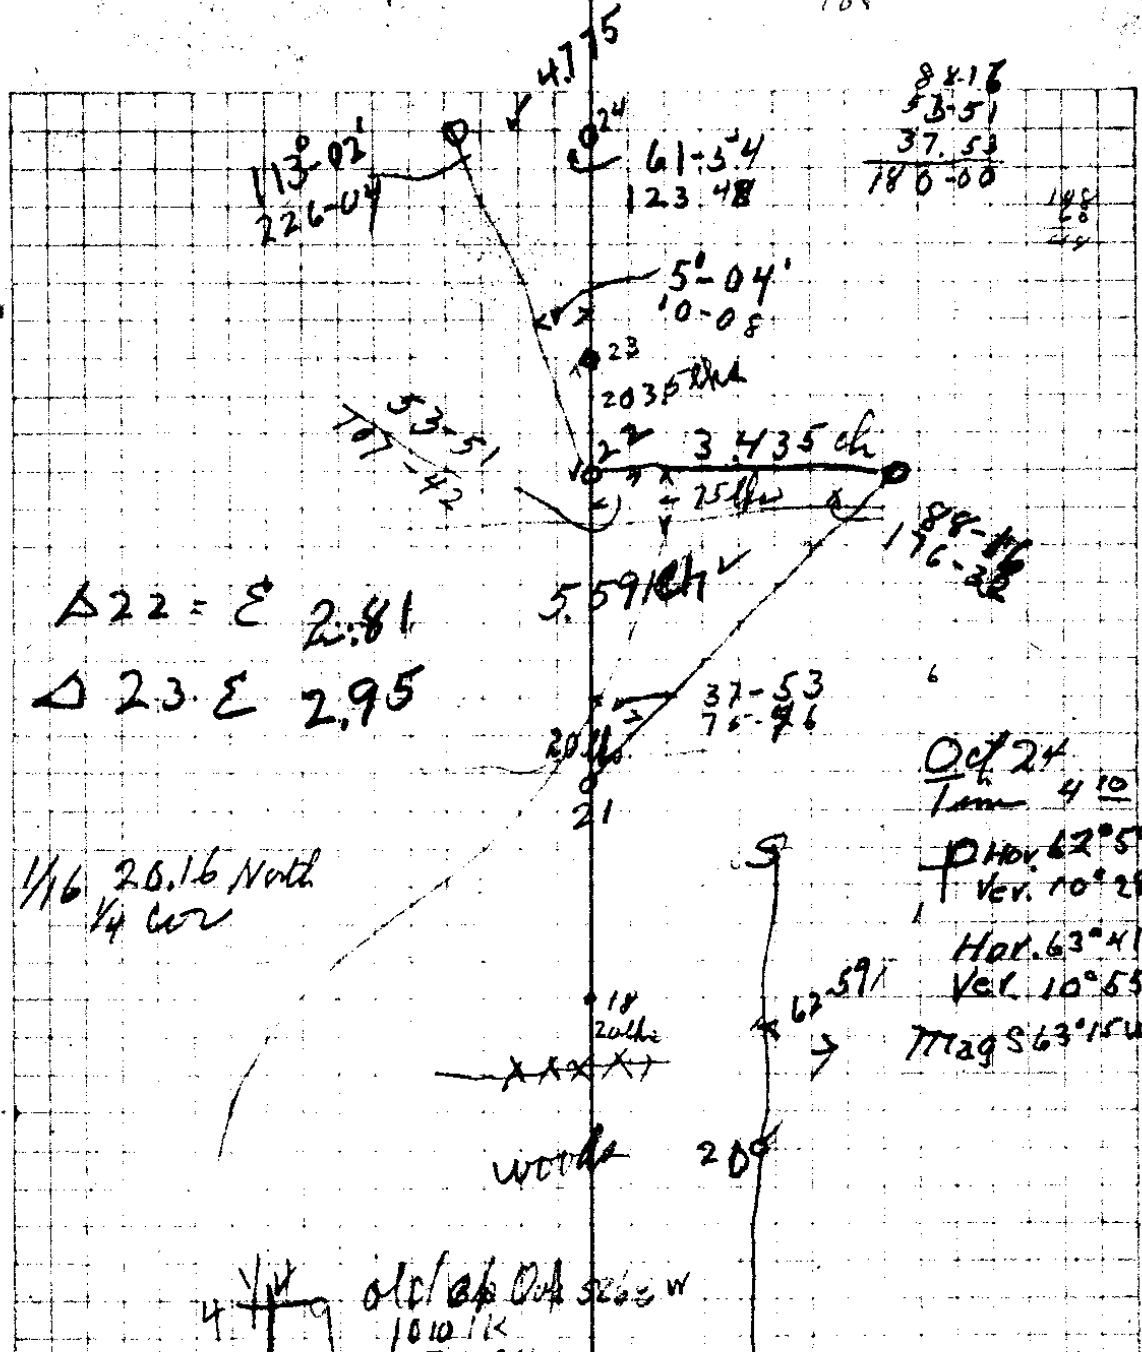 4.775
88-16
53-51
37.53
180-00
24
113°-02'
226-04
61-54
123.48
5°-04'
10-08
23
2035 lks
53-51
107-42
22
3.435 ch
75 lks
88-16
176-32
5.591 ch
Δ22 = Σ 2.81
Δ 23. Σ 2.95
37-53
75-46
6
20 lks
21
Oct 24
Time 4 10
Hor. 62°5
Ver. 10°2
Hor. 63°41
Ver. 10°55
Mag S 63°15
1/16 20.16 North
1/4 Cor
S
18
20 lks
62
woods
20
4
9
old
1010 lk